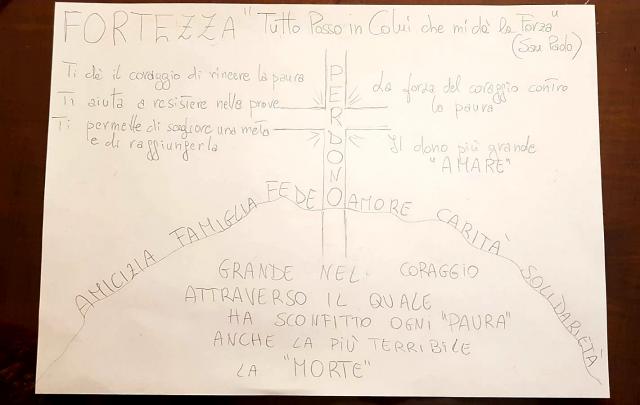 FORTEZZA "Tutto Posso in Colui che mi dà la Forza"
(San Paolo)
Ti dà il coraggio di vincere la paura
Ti aiuta a resistere nelle prove
Ti permette di scegliere una meta
e di raggiungerla
PERDONO
La forza del coraggio contro
la paura
Il dono più grande
"AMARE"
AMICIZIA FAMIGLIA FEDE AMORE CARITÀ SOLIDARIETÀ
GRANDE NEL CORAGGIO
ATTRAVERSO IL QUALE
HA SCONFITTO OGNI "PAURA"
ANCHE LA PIÙ TERRIBILE
LA "MORTE"